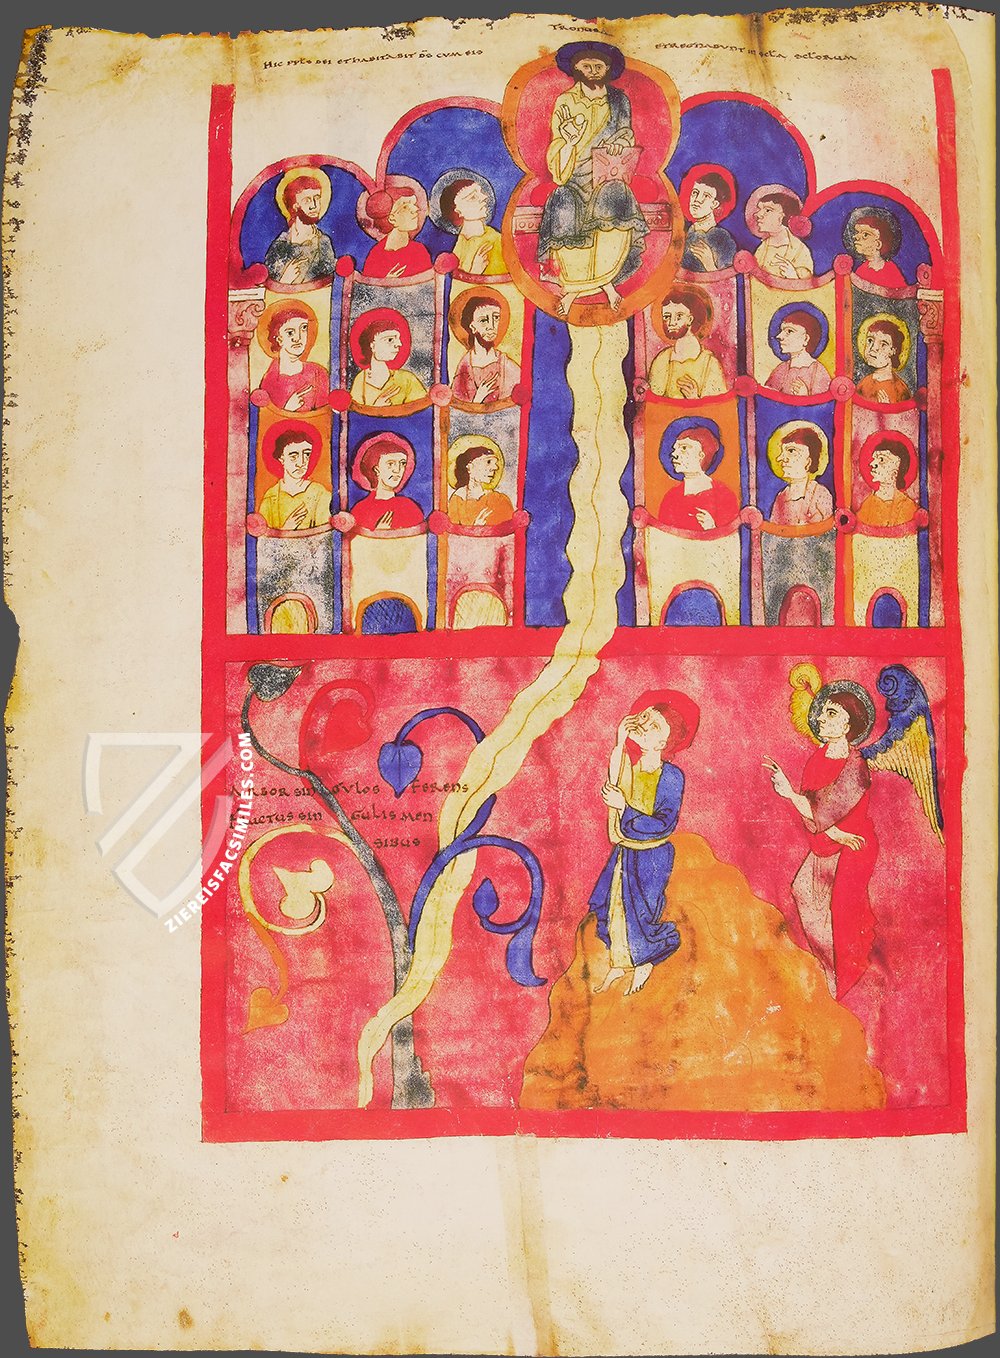 TRONUM
HIC PPLS DEI ET HABITABIT DS CUM EIS ET REGNABUNT IN SCLA SCLORUM
ARBOR SINGULOS FERENS
FRUCTUS SIN GULIS MEN
SIBUS
ZIEREISFACSIMILES.COM